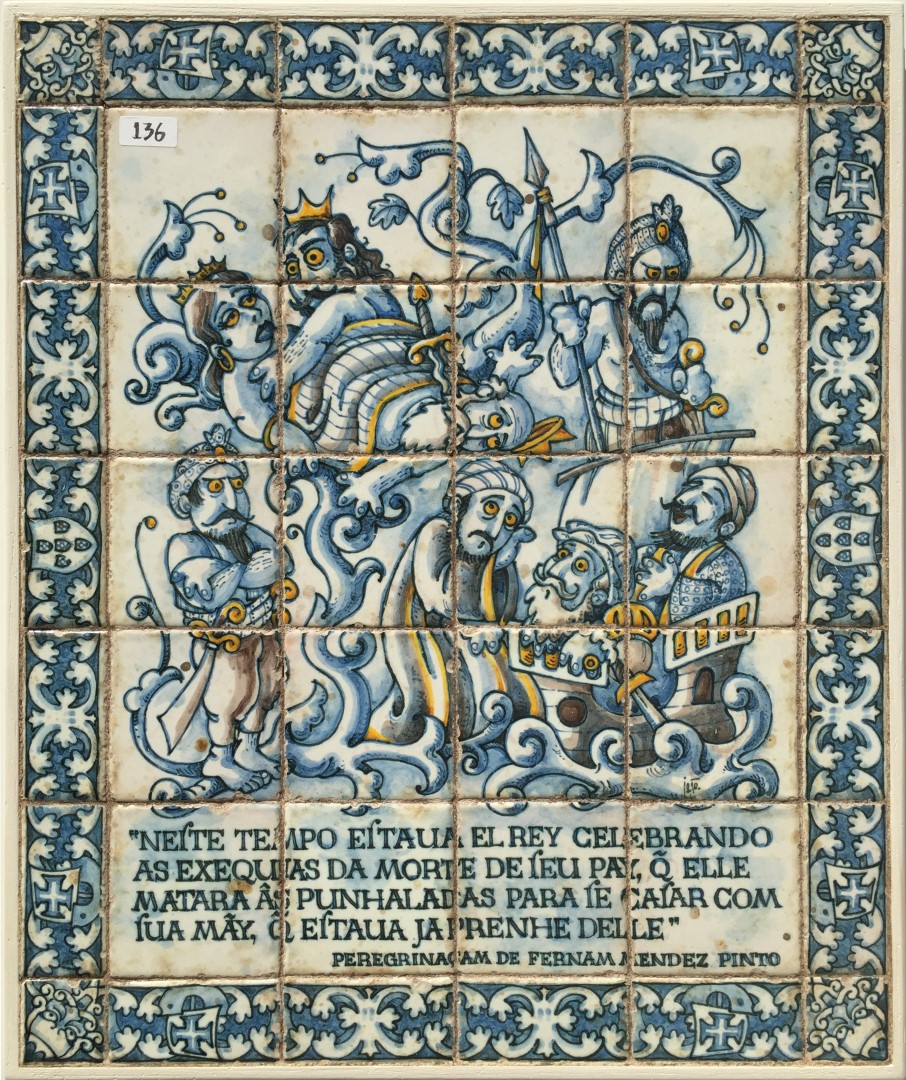 136
"NEſTE TEMPO EſTAUA EL REY CELEBRANDO
AS EXEQUIAS DA MORTE DE ſEU PAY, Q̃ ELLE
MATARA ÂS PUNHALADAS PARA ſE CAſAR COM
ſUA MÃY, Q̃ EſTAUA JA PRENHE DELLE"
PEREGRINAÇAM DE FERNAM MENDEZ PINTO